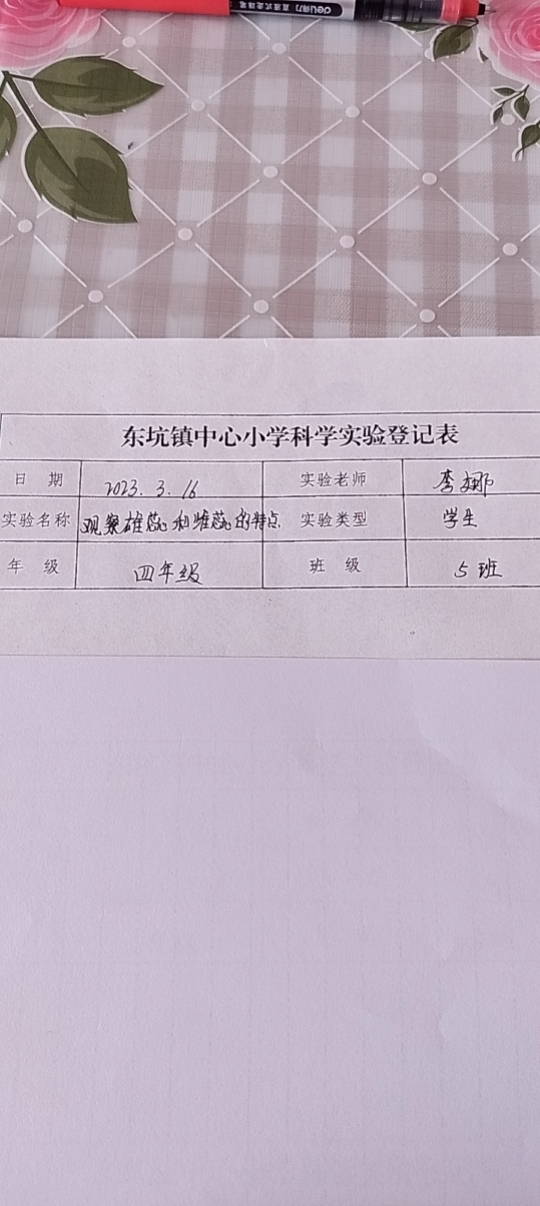 deli得力 直液式走珠笔
东坑镇中心小学科学实验登记表
日 期 2023.3.16 实验老师 李娜
实验名称 观察雄蕊和雌蕊的特点 实验类型 学生
年 级 四年级 班 级 5班